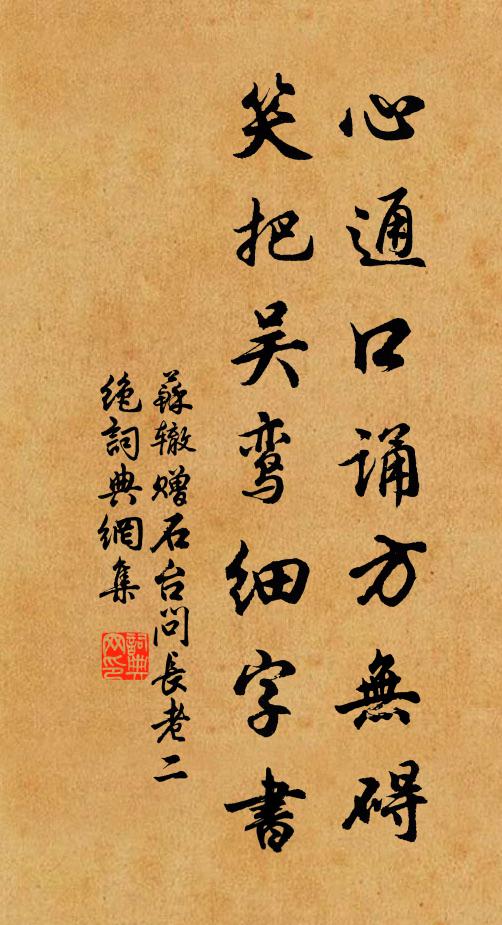 心通口诵方無碍
笑把吴鸾细字書
蘇辙赠石台問長老二
絶詞典網集
詞典
网印